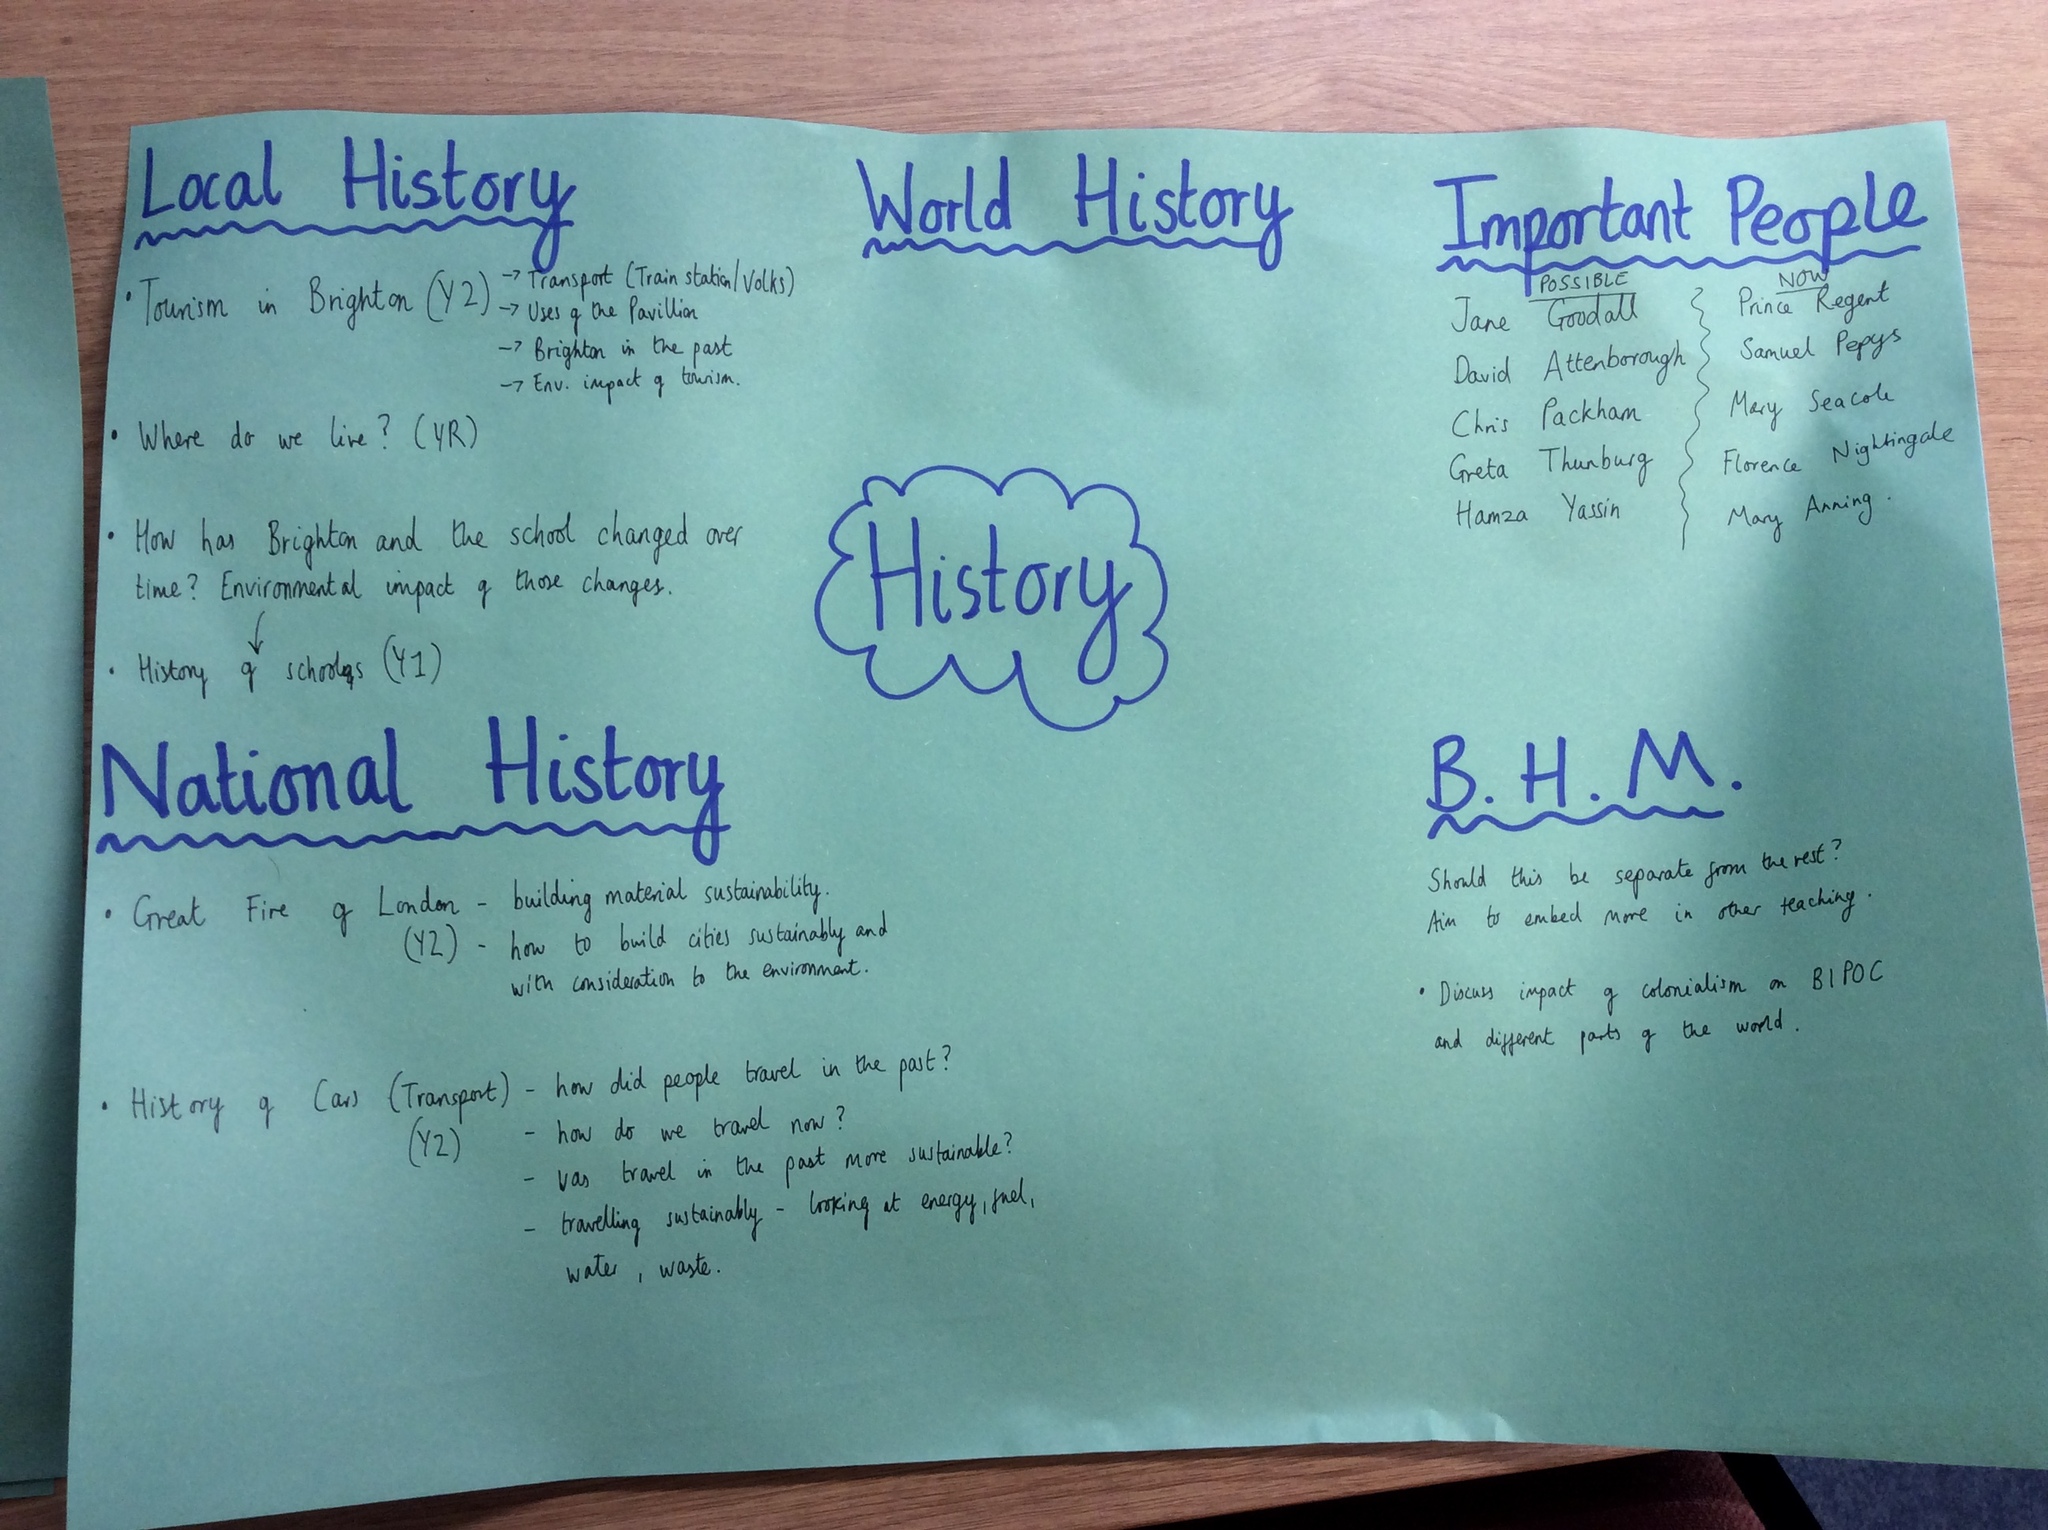 Local History
• Tourism in Brighton (Y2)
→ Transport (Train station/Volks)
→ Uses of the Pavillion
→ Brighton in the past
→ Env. impact of tourism.
• Where do we live? (YR)
• How has Brighton and the school changed over
time? Environmental impact of those changes.
↓
• History of schools (Y1)
World History
History
Important People
POSSIBLE
Jane Goodall
David Attenborough
Chris Packham
Greta Thunburg
Hamza Yassin
NOW
Prince Regent
Samuel Pepys
Mary Seacole
Florence Nightingale
Mary Anning.
National History
• Great Fire of London - building material sustainability.
(Y2) - how to build cities sustainably and
with consideration to the environment.
• History of Cars (Transport) - how did people travel in the past?
(Y2) - how do we travel now?
- was travel in the past more sustainable?
- travelling sustainably - looking at energy, fuel,
water, waste.
B. H. M.
Should this be separate from the rest?
Aim to embed more in other teaching.
• Discuss impact of colonialism on BIPOC
and different parts of the world.